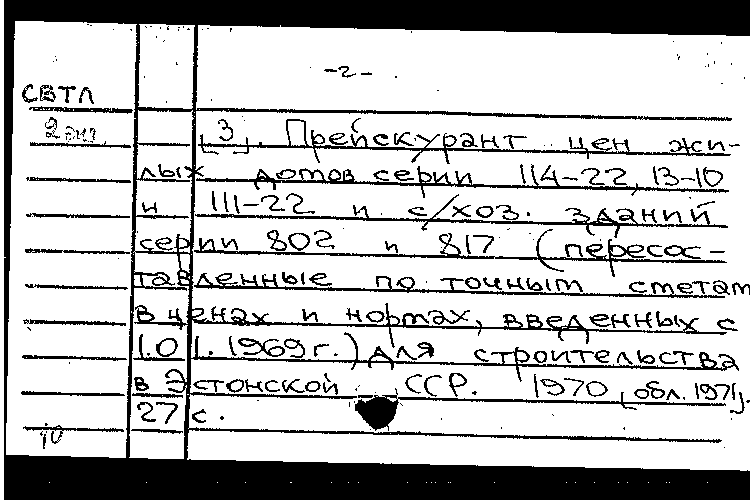 -2-
СВТЛ
2 экз. [3]. Прейскурант цен жи-
лых домов серии 114-22, 13-10
и 111-22 и с/хоз. зданий
серии 802 и 817 (пересос-
тавленные по точным сметам
в ценах и нормах, введенных с
1.01.1969г.) для строительства
в Эстонской ССР. 1970 [обл. 1971].
27 с.
10